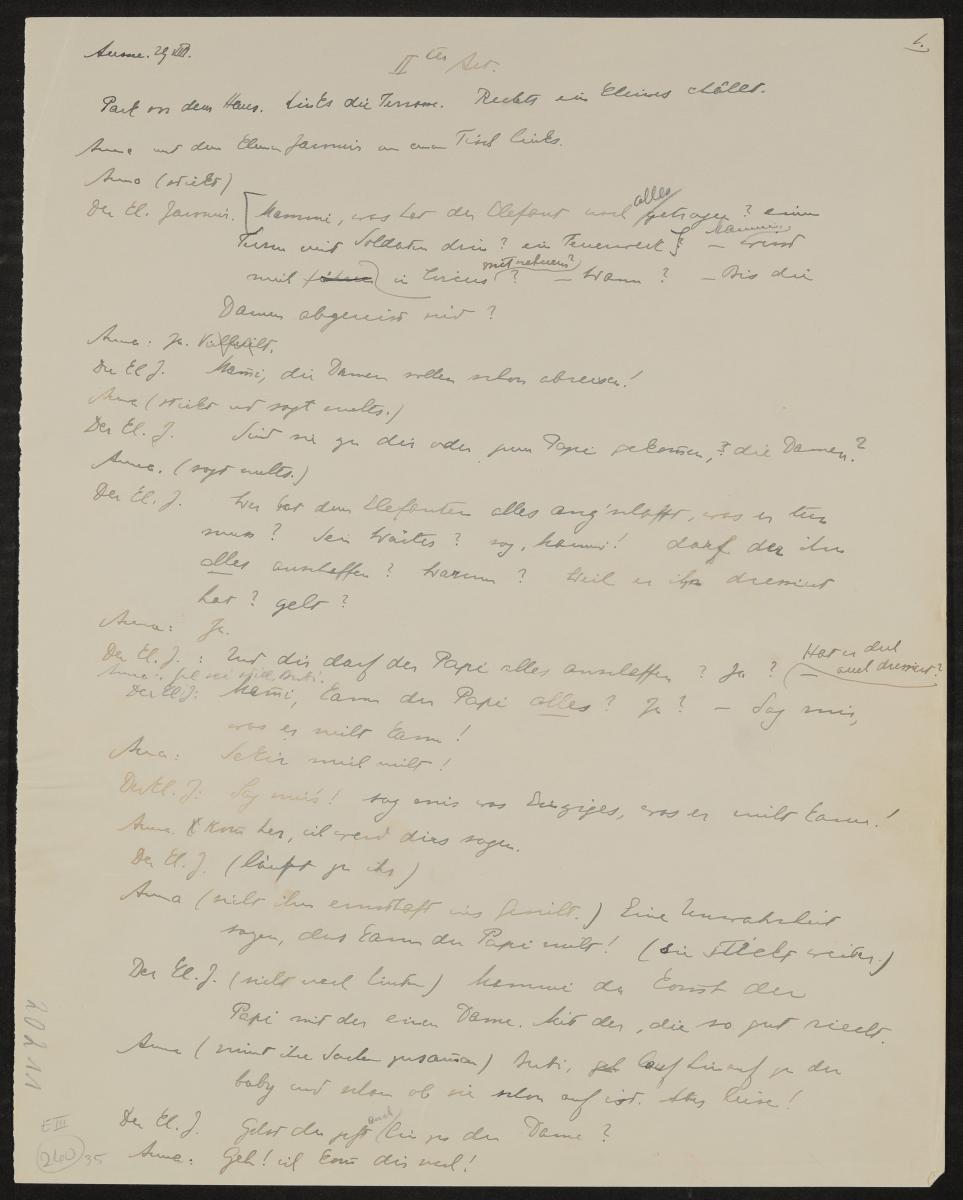 Aussee. 29 VIII.
1.
IIter Act.
Park vor dem Haus. Links die Terrasse. Rechts ein kleines
Anna und den kleinen Jaromir an einem Tisch links.
Anna (stickt)
Der kl. Jaromir. Mammi, was hat der Elefant noch alles getragen? einen
Turm mit Soldaten drin? ein Feuerwerk? – Mammi wirst
mich in Circus mitnehmen? – Wann? – Bis die
Damen abgereist sind?
Anna: Ja. Vielleicht.
Der kl J. Mam̄i, die Damen sollen schon abreisen!
Anna (stickt und sagt nichts.)
Der kl. J. Sind sie zu dir oder zum Papi gekom̄en, die Damen?
Anna. (sagt nichts.)
Der kl. J. Wer hat dem Elefanten alles ang'schafft, was er tun
muss? Sein Wärter? sag, Mammi! darf der ihm
alles anschaffen? Warum? Weil er ihn dressiert
hat? gelt?
Anna: Ja.
Der kl. J.: Und dir darf der Papi alles anschaffen? Ja? – Hat er dich
auch dressiert?
Anna: Bubi.
Der kl J: Mam̄i, kann der Papi alles? Ja? – Sag mir,
was er nicht kann!
Anna: Sekir mich nicht!
Der kl. J: Sag mirs! sag mir was Einziges, was er nicht kann!
Anna. Kom̄ her, ich werd dirs sagen.
Der kl. J. (läuft zu ihr)
Anna (sieht ihm ernsthaft ins Gesicht.) Eine Unwahrheit
sagen, das kann der Papi nicht! (sie stickt weiter.)
Der kl. J. (sieht nach hinten) Mammi da kom̄t der
Papi mit der einen Dame. Mit der, die so gut riecht.
Anna (nimt ihre Sachen zusam̄en) Bubi, lauf hinauf zu der
baby und schau ob sie schon auf ist. Aber leise!
Der kl. J. Gehst du jetzt auch hin zu der Dame?
Anna: Geh! ich kom̄ dir nach!
20211
E III
240
35